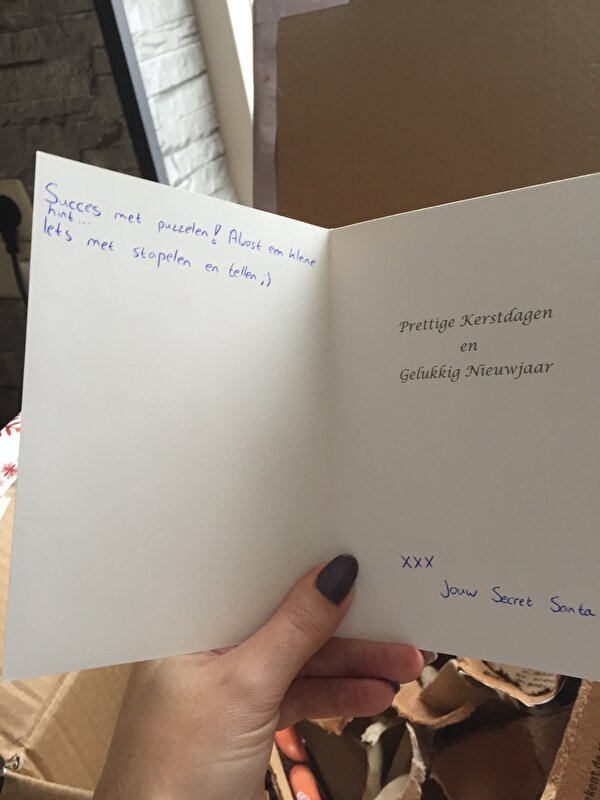 Succes met puzzelen! Alvast een kleine
hint...
Iets met stapelen en tellen ;)
Prettige Kerstdagen
en
Gelukkig Nieuwjaar
XXX
Jouw Secret Santa